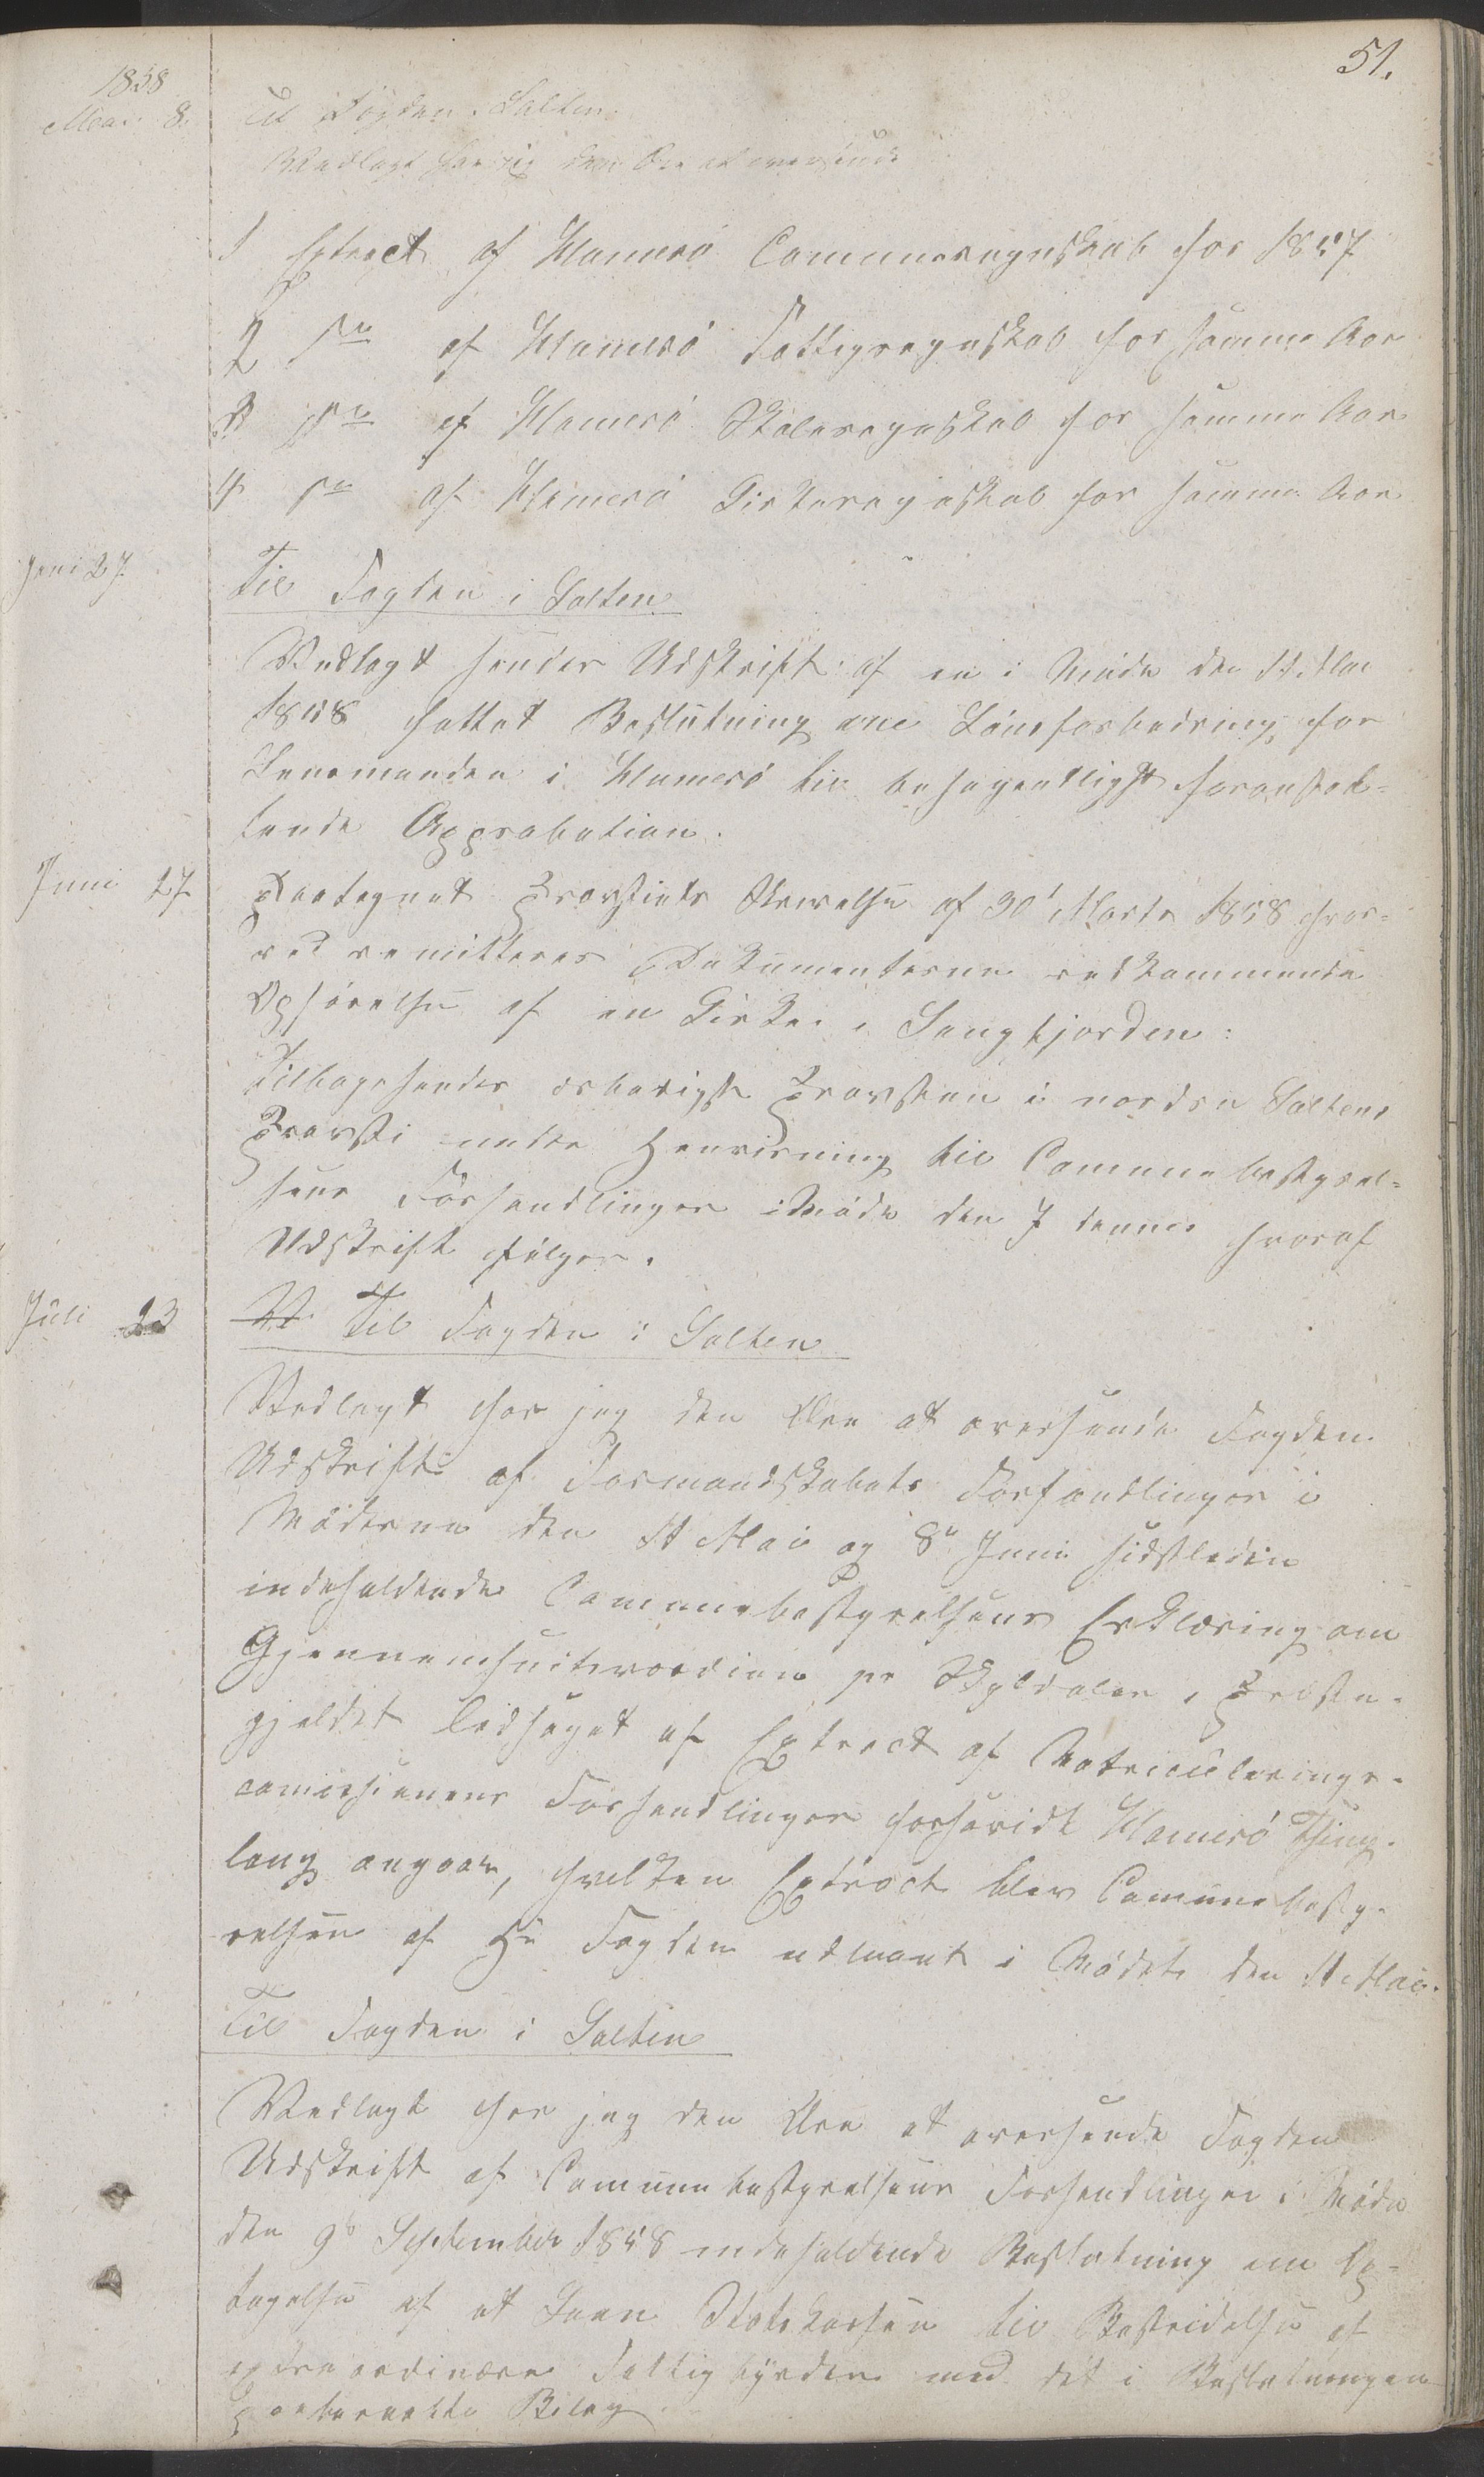 51.
1858
Mai 8. Til Fogden i Salten
Vedlagt har jeg den Ære at oversende
1 Extract af Hamerø Communeregnskab for 1857
2 do af Hamerø Fattigregnskab for samme Aar
3 do af Hamerø Skoleregnskab for samme Aar
4 do af Hamerø Kirkeregnskab for samme Aar
Juni 27. Til Fogden i Salten
Vedlagt sendes Udskrift af en i Møde den 11 Mai
1858 fattet Beslutning om Lønsforbedring for
Lensmanden i Hamerø til behageligst foranstal-
tende Approbation.
Juni 27 Paategnet Provstiets Skrivelse af 30' Marts 1858 hvor-
ved remitteres Dokumenterne vedkommende
Opførelse af en Kirke i Sagfjorden:
Tilbagesendes ærbødigst Provsten i nordre Saltens
Provsti under Henvisning til Communebestyrel-
sens Forhandlinger i Møde den 7 dennes hvoraf
Udskrift følger.
Juli 23 V Til Fogden i Salten
Vedlagt har jeg den Ære at oversende Fogden
Udskrift af Formandskabets Forhandlinger i
Møderne den 11 Mai og 8de Juni sidstleden
indeholdende Communebestyrelsens Erklæring om
Gjennemsnitsværdien pr Skylddaler i Præste-
gjeldet ledsaget af Extract af Matriculerings-
comissionens Forhandlinger forsaavidt Hamerø Thing-
laug angaar, hvilken Extract blev Communebesty-
relsen af Hr Fogden tilsendt i Mødet den 11 Mai.
Til Fogden i Salten
Vedlagt har jeg den Ære at oversende Fogden
Udskrift af Communebestyrelsens Forhandlinger i Møde
den 9de September 1858 indeholdende Beslutning om Op-
tagelse af et Laan Statskassen til Bestridelse af
extraordinære Fattigbyrder med det i Beslutningen
paaberaabte Bilag.